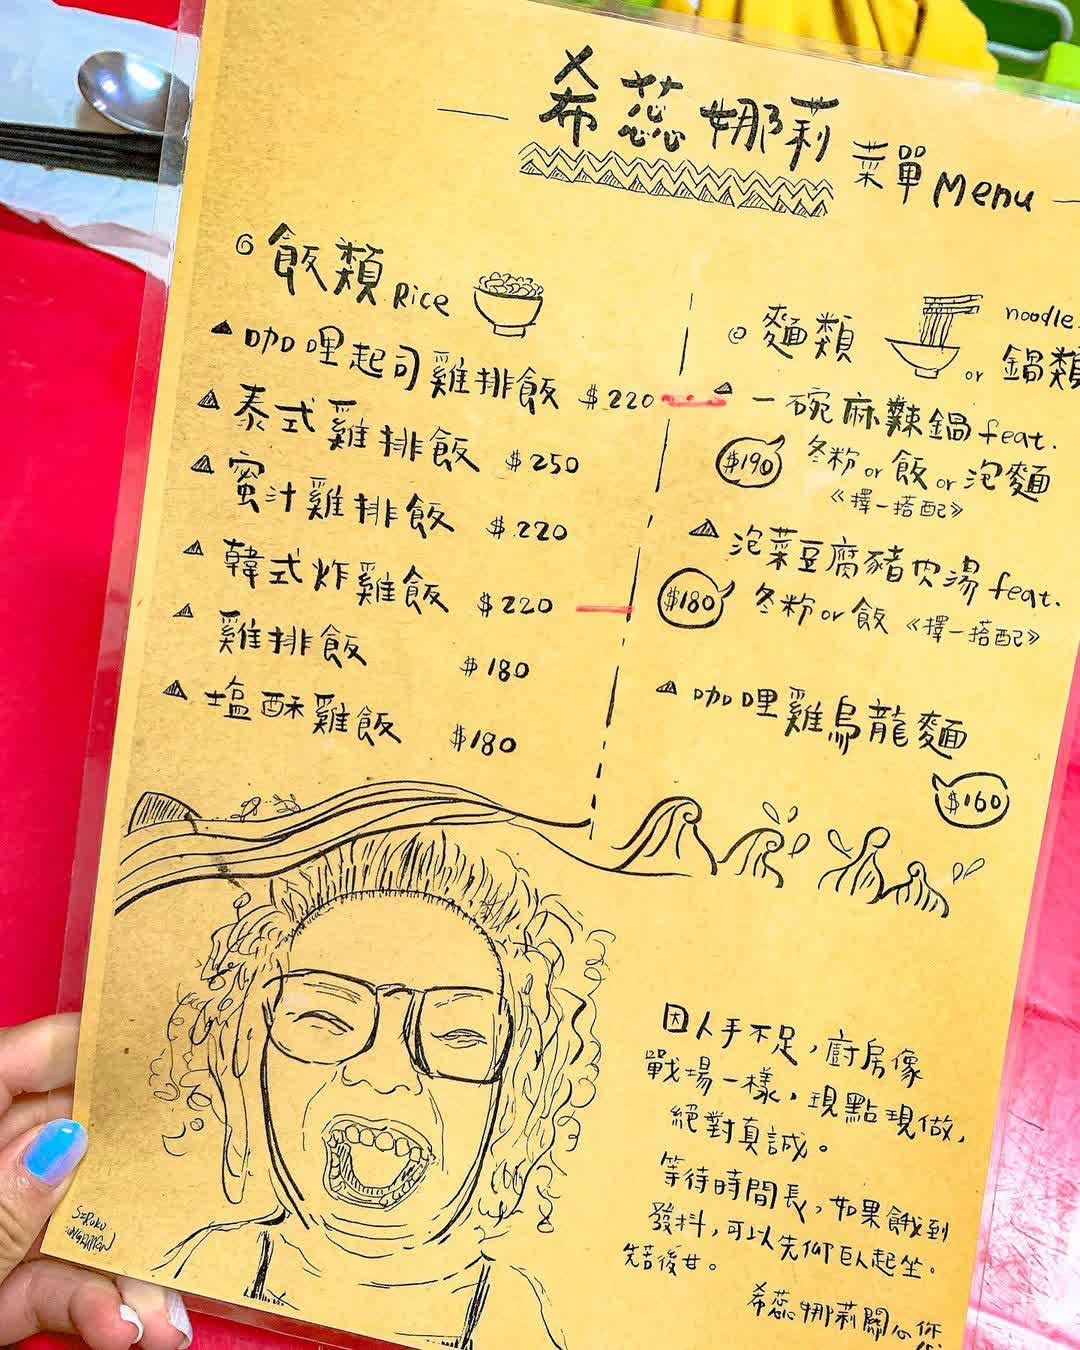 希蕊娜莉 菜單 Menu
飯類 Rice
咖哩起司雞排飯 $220
泰式雞排飯 $250
蜜汁雞排飯 $220
韓式炸雞飯 $220
雞排飯 $180
塩酥雞飯 $180
麵類 noodle.
or 鍋類
一碗麻辣鍋 feat.
$190 冬粉 or 飯 or 泡麵
《擇一搭配》
泡菜豆腐豬肉湯 feat.
$180 冬粉 or 飯 《擇一搭配》
咖哩雞烏龍麵
$160
因人手不足，廚房像
戰場一樣，現點現做，
絕對真誠。
等待時間長，如果餓到
發抖，可以先仰臥起坐。
先苦後甘。
希蕊娜莉關心你